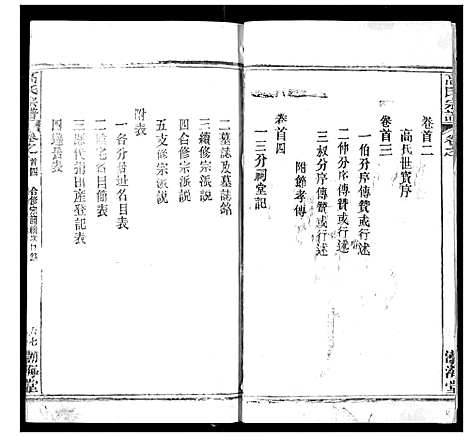 高氏宗譜
卷首之
渤海堂
卷首二
高氏世實序
卷首三
一伯分序傳贊或行述
二仲分序傳贊或行述
三叔分序傳贊或行述
附節孝傳
卷首四
一三分祠堂記
二墓誌及墓誌銘
三續修宗派說
四合修宗派說
五支修宗派說
附表
一各分派名目表
二陽宅名目表
三歷代祠田產登記表
四達長表
高氏宗譜
卷之首四
合修宗譜
六七
渤海堂